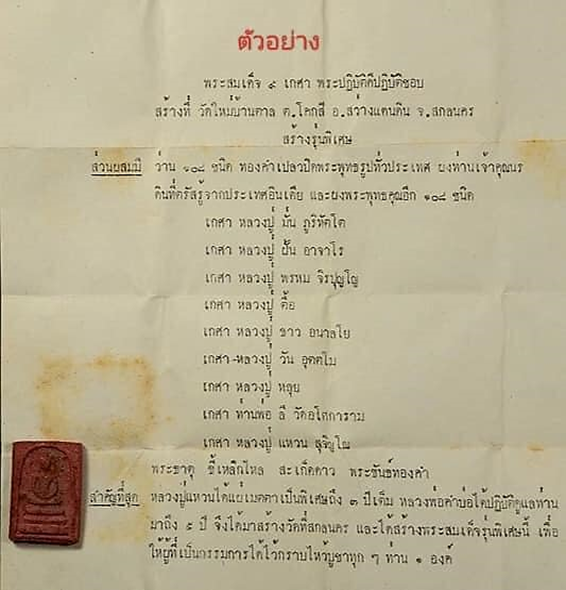 ตัวอย่าง
พระสมเด็จ ๙ เกศา พระปฏิบัติดีปฏิบัติชอบ
สร้างที่ วัดใหม่บ้านตาล ต.โคกสี อ.สว่างแดนดิน จ.สกลนคร
สร้างรุ่นพิเศษ
ส่วนผสมมี ว่าน ๑๐๘ ชนิด ทองคำเปลวปิดพระพุทธรูปทั่วประเทศ ผงท่านเจ้าคุณนร
ดินที่ตรัสรู้จากประเทศอินเดีย และผงพระพุทธคุณอีก ๑๐๘ ชนิด
เกศา หลวงปู่ มั่น ภูริทัตโต
เกศา หลวงปู่ ฝั้น อาจาโร
เกศา หลวงปู่ พรหม จิรปุญโญ
เกศา หลวงปู่ ตื้อ
เกศา หลวงปู่ ขาว อนาลโย
เกศา หลวงปู่ วัน อุตตโม
เกศา หลวงปู่ หลุย
เกศา ท่านพ่อ ลี วัดอโศการาม
เกศา หลวงปู่ แหวน สุจิณโณ
พระธาตุ ขี้เหล็กไหล สะเก็ดดาว พระขันธ์ทองคำ
สำคัญที่สุด หลวงปู่แหวนได้แผ่เมตตาเป็นพิเศษถึง ๓ ปีเต็ม หลวงพ่อคำบ่อได้ปฏิบัติดูแลท่าน
มาถึง ๕ ปี จึงได้มาสร้างวัดที่สกลนคร และได้สร้างพระสมเด็จรุ่นพิเศษนี้ เพื่อ
ให้ผู้ที่เป็นกรรมการได้ไว้กราบไหว้บูชาทุก ๆ ท่าน ๑ องค์